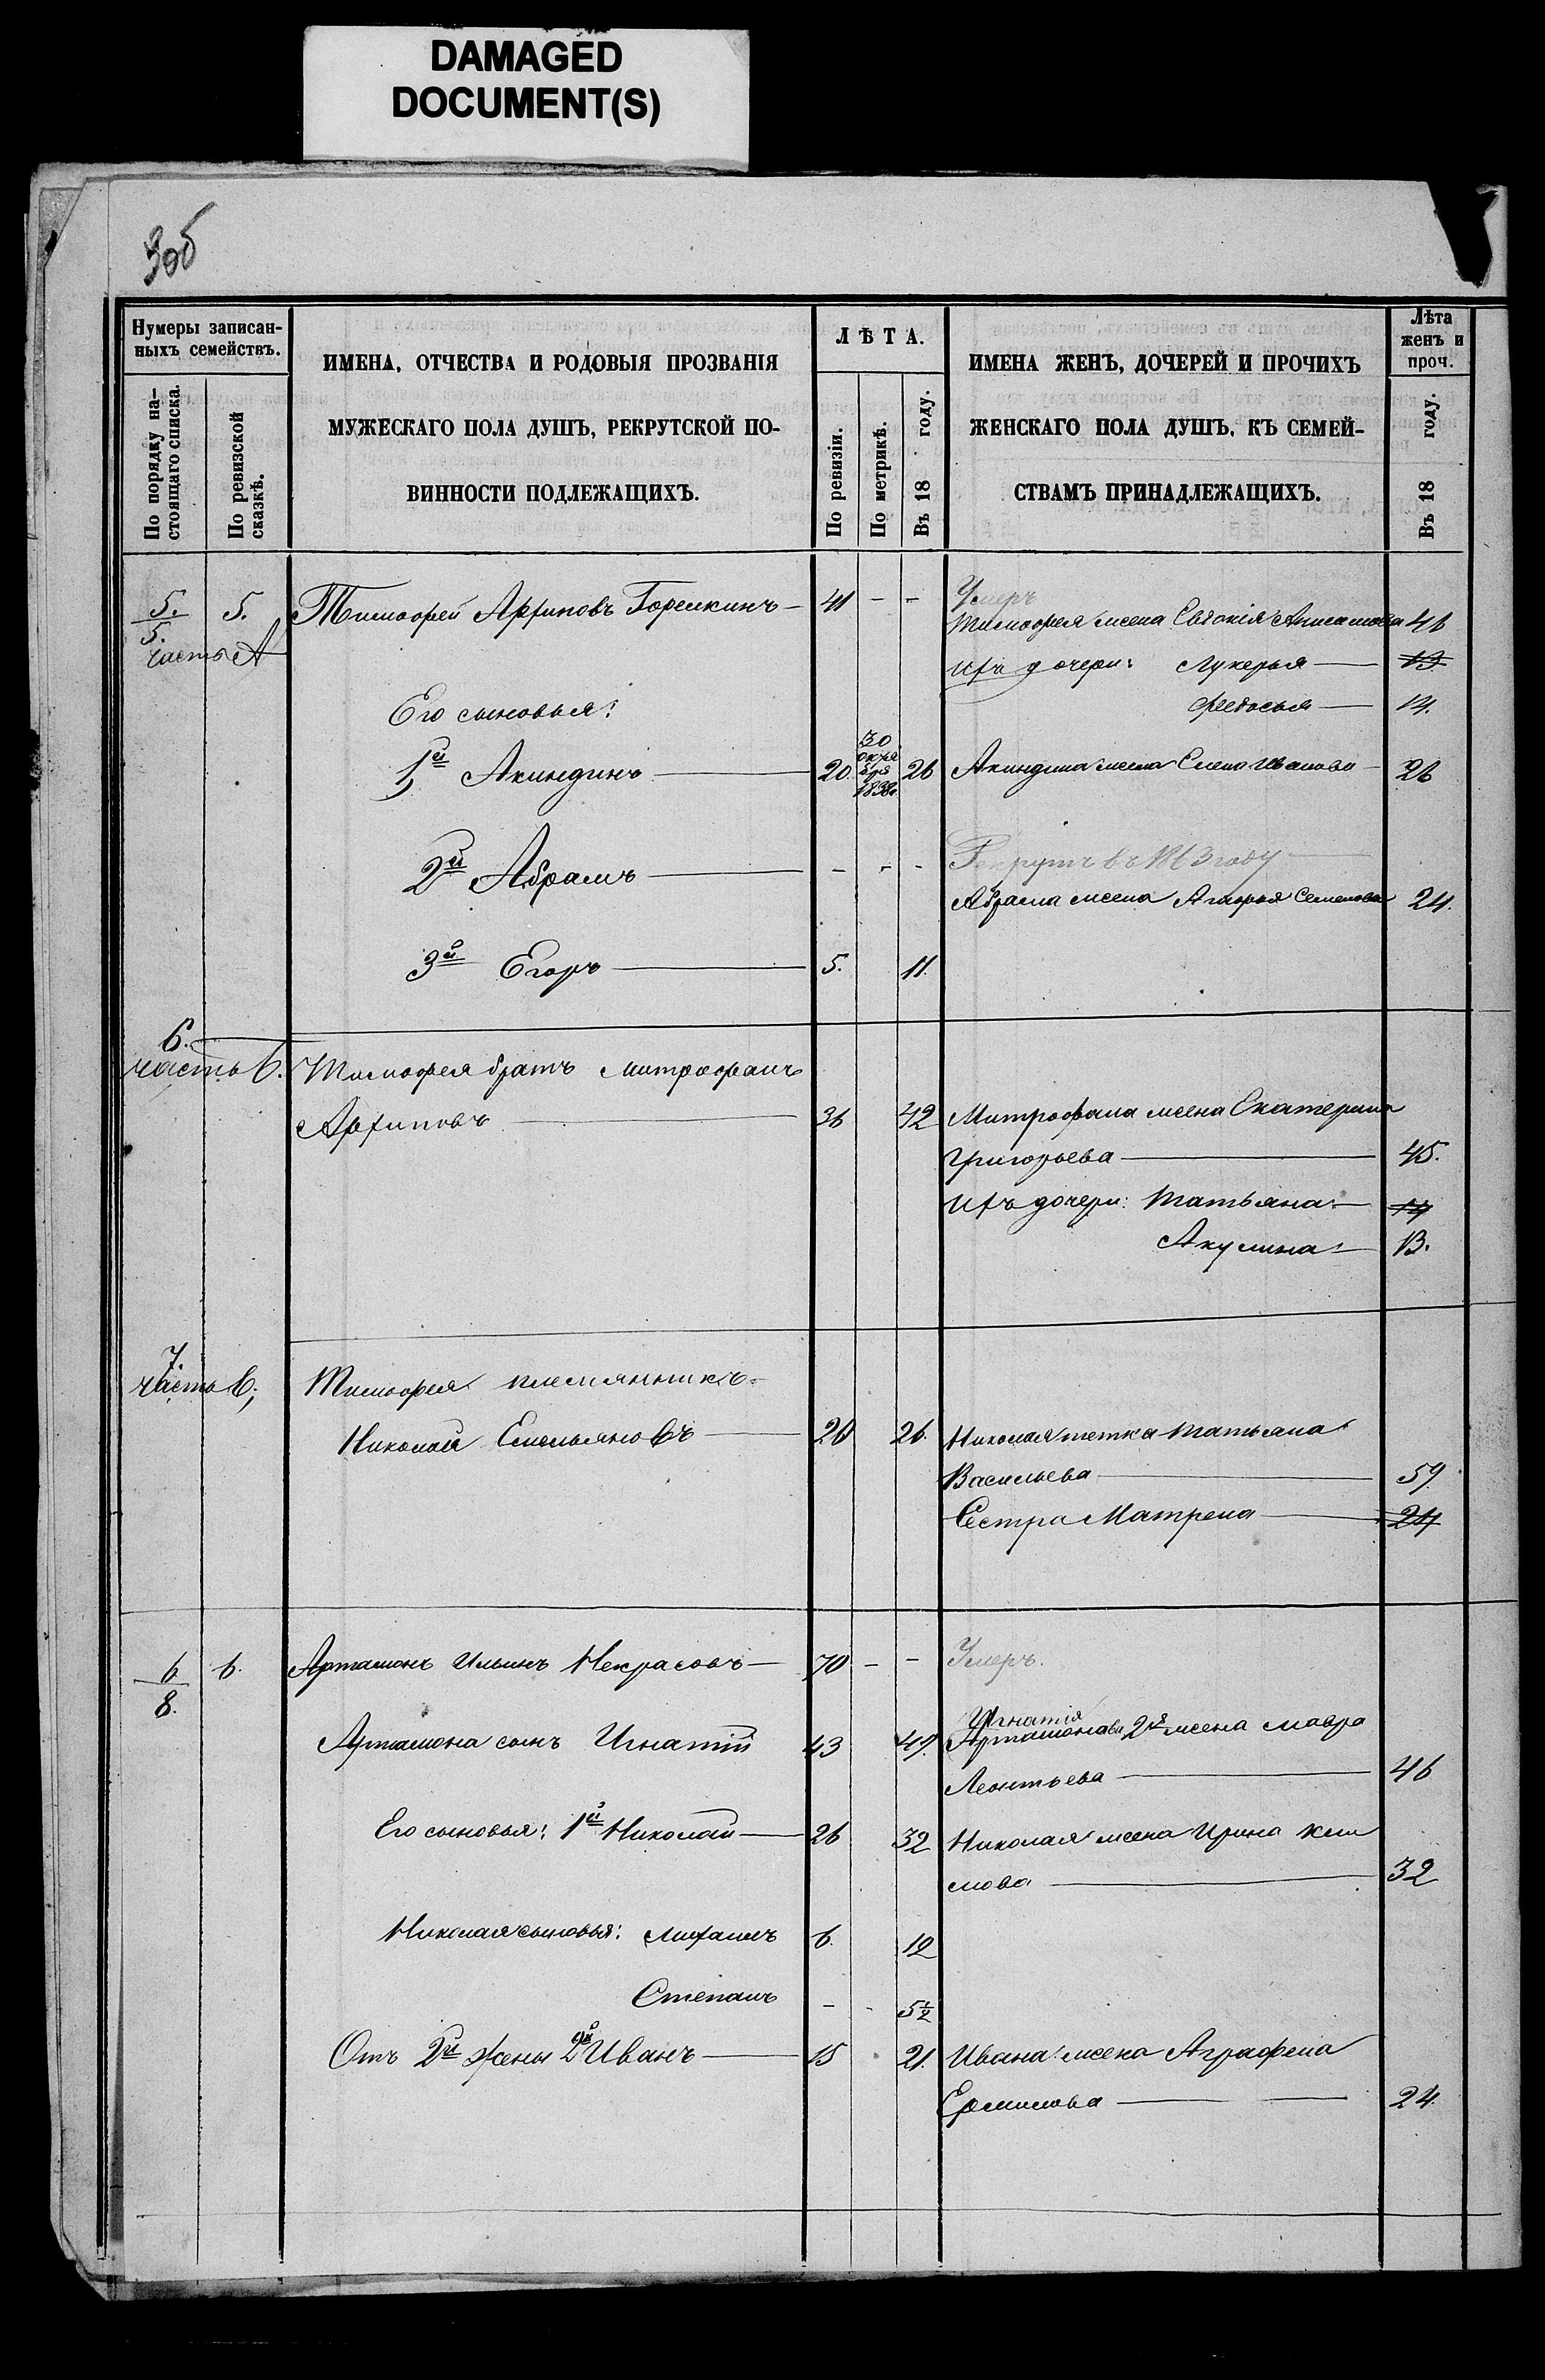 DAMAGED
DOCUMENT(S)
3об
Нумеры записан-
ныхъ семействъ.
По порядку на-
стоящаго списка.
По ревизской
сказкѣ.
ИМЕНА, ОТЧЕСТВА И РОДОВЫЯ ПРОЗВАНІЯ
МУЖЕСКАГО ПОЛА ДУШЪ, РЕКРУТСКОЙ ПО-
ВИННОСТИ ПОДЛЕЖАЩИХЪ.
ЛѢТА.
По ревизіи.
По метрикѣ.
Въ 18 году.
ИМЕНА ЖЕНЪ, ДОЧЕРЕЙ И ПРОЧИХЪ
ЖЕНСКАГО ПОЛА ДУШЪ, КЪ СЕМЕЙ-
СТВАМЪ ПРИНАДЛЕЖАЩИХЪ.
Лѣта
женъ и
проч.
Въ 18 году.
5. 5. Тимофей Архиповъ Горемкинъ — 41 - - Умеръ
5. Тимофея жена Евдокія 46
часть А
ихъ дочери: Лукерья — 13
Его сыновья: Федосья — 14.
1й Акиндинъ — 20. 30 октября 1838г. 26 Акиндина жена Елена Иванова — 26
2й Абрамъ — - - - Рекрутъ въ 1863 году —
Абрама жена Семенова 24.
3й Егоръ — 5. 11.
6.
часть В. Тимофея братъ Митрофанъ
Архиповъ — 36 42 Митрофана жена Екатерина
Григорьева — 45.
ихъ дочери: Татьяна — 14
Акулина — 13.
7.
часть В; Тимофея племянникъ
Николай Емельяновъ — 20 26. Николая тетка Татьяна
Васильева — 59.
Сестра Матрена — 24
6 6. Артамонъ Ильинъ Некрасовъ — 70 - - Умеръ.
8.
Игнатія
Артамона сынъ Игнатій 43 49. Артамонова 2я жена Мавра
Леонтьева — 46
Его сыновья: 1й Николай — 26 32 Николая жена Ирина Кли
мова — 32
Николая сыновья: Михаилъ 6. 12
Степанъ - - 5½
Отъ 2й жены 2й Иванъ — 15 21. Ивана жена Аграфена
Ермилова — 24.